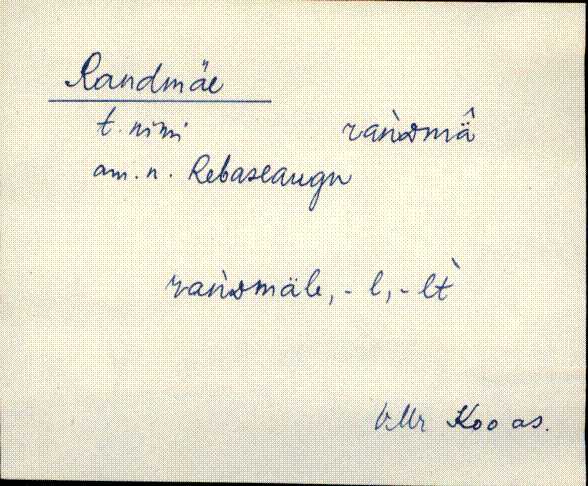 Randmäe
t. nimi ran̆ᴅmä̂
am. n. Rebaseaugu
ran̆ᴅmäle, - l, - lt̀
VMr Koo as.